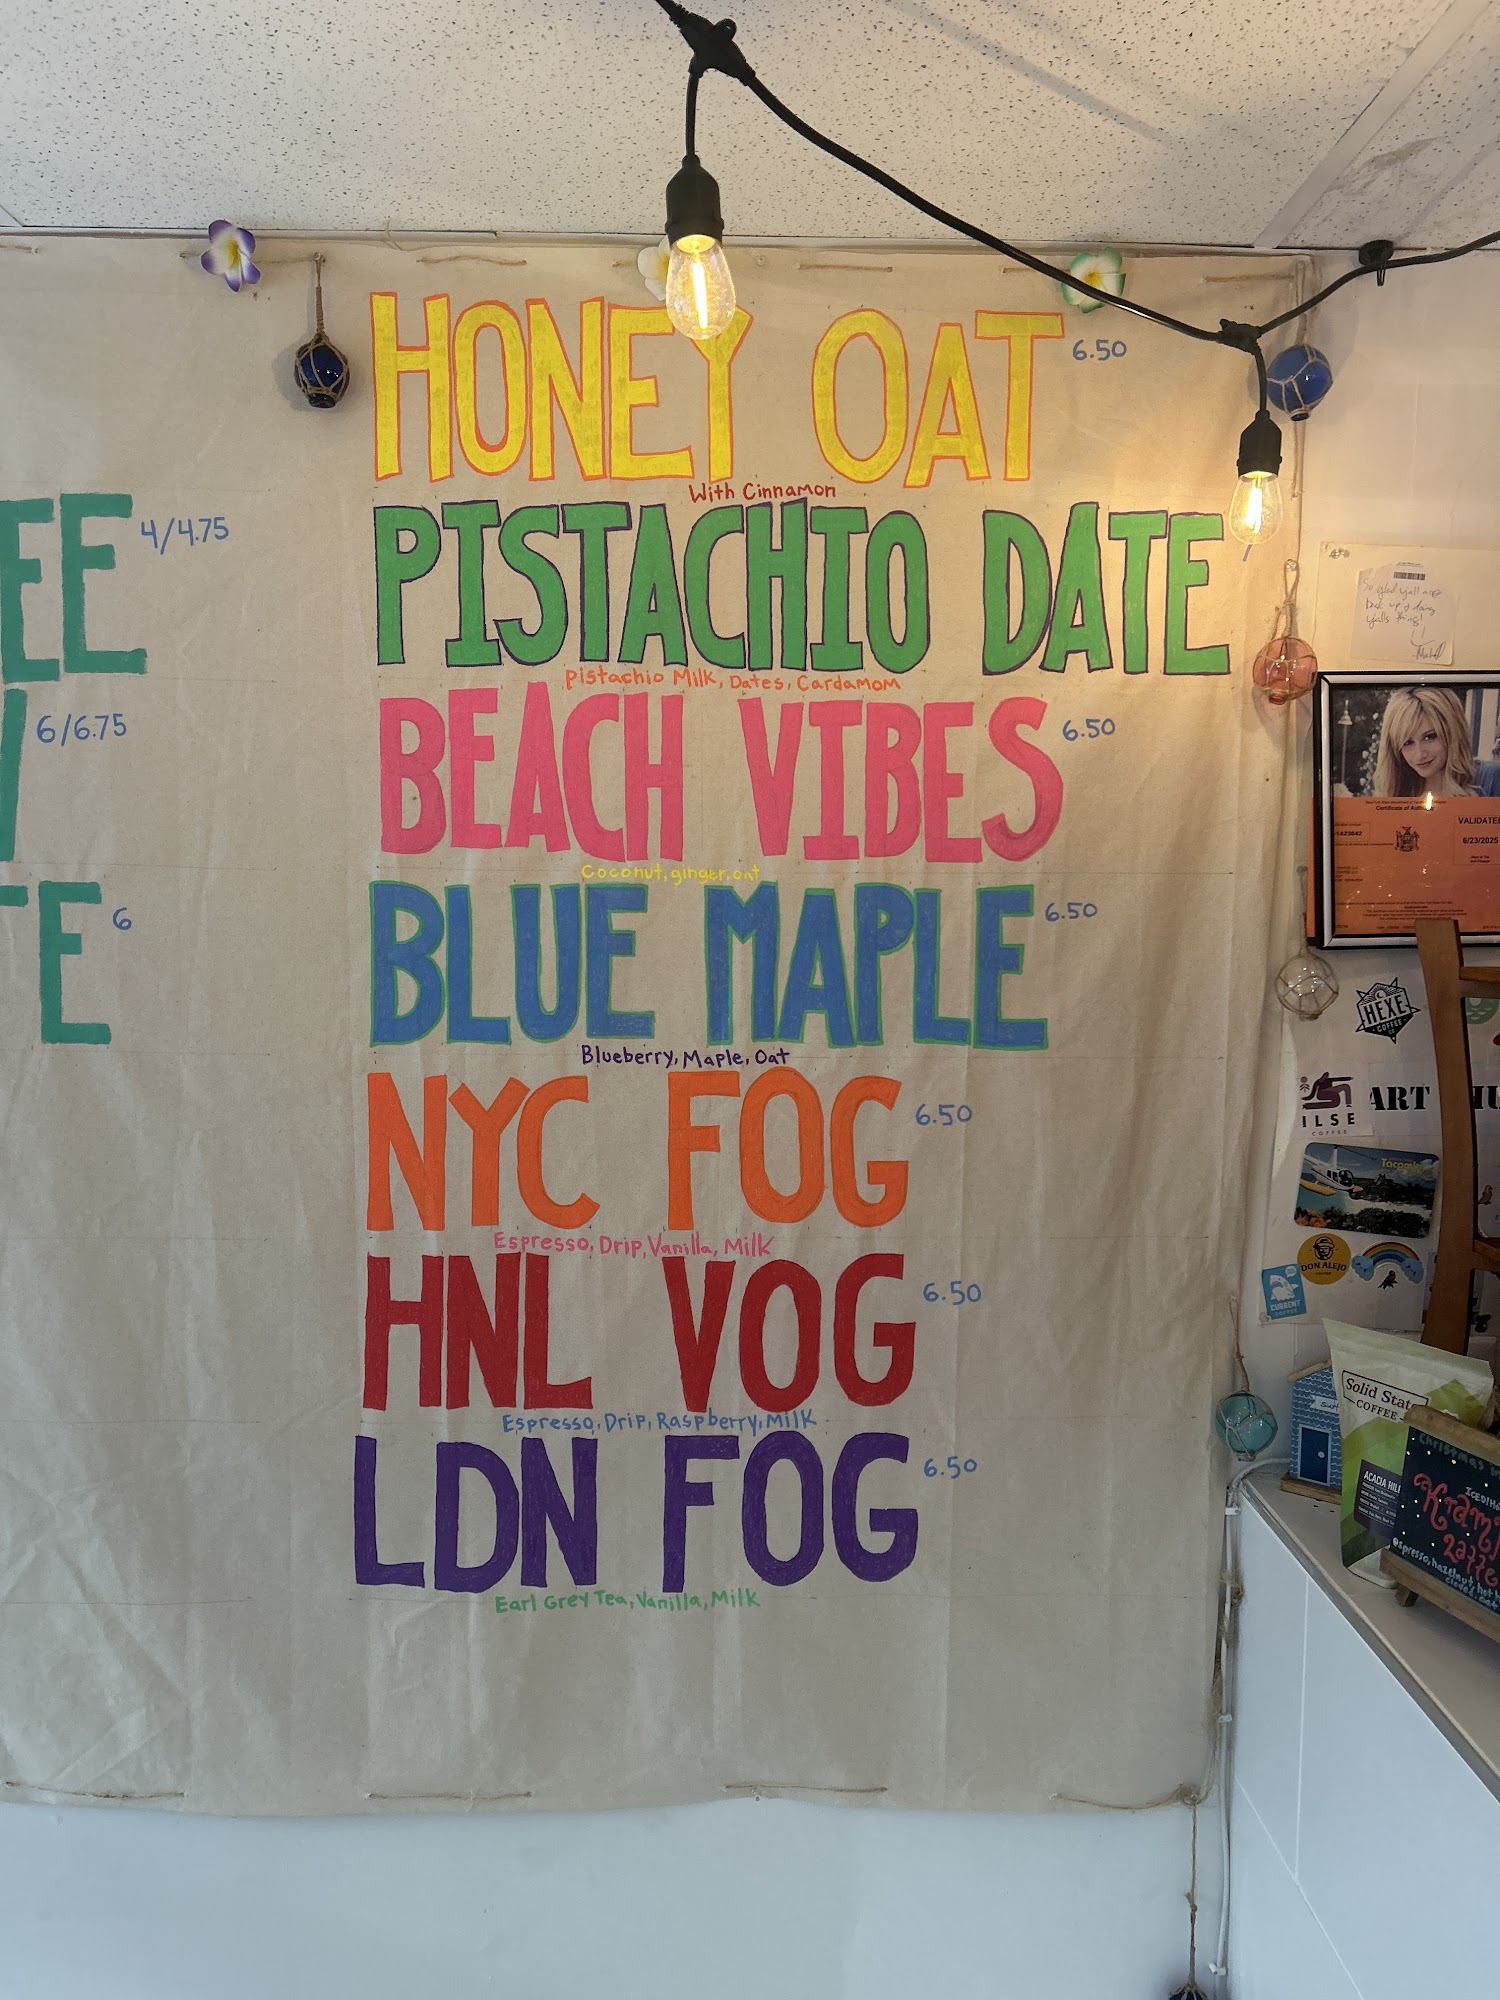 HONEY OAT 6.50
With Cinnamon
PISTACHIO DATE
Pistachio Milk, Dates, Cardamom
BEACH VIBES 6.50
Coconut, ginger, oat
BLUE MAPLE 6.50
Blueberry, Maple, Oat
NYC FOG 6.50
Espresso, Drip, Vanilla, Milk
HNL VOG 6.50
Espresso, Drip, Raspberry, Milk
LDN FOG 6.50
Earl Grey Tea, Vanilla, Milk
EE 4/4.75
6/6.75
TE 6
So glad y'all are
back up & doing
y'alls thing!
Certificate of
VALIDATED
6/23/2025
HEXE
COFFEE
ILSE
COFFEE
ART
DON ALEJO
CURRENT
COFFEE
Solid State
COFFEE
ACACIA HILL
Christmas
ICED/HO
Kram
Latte
espresso, hazelnut, hot